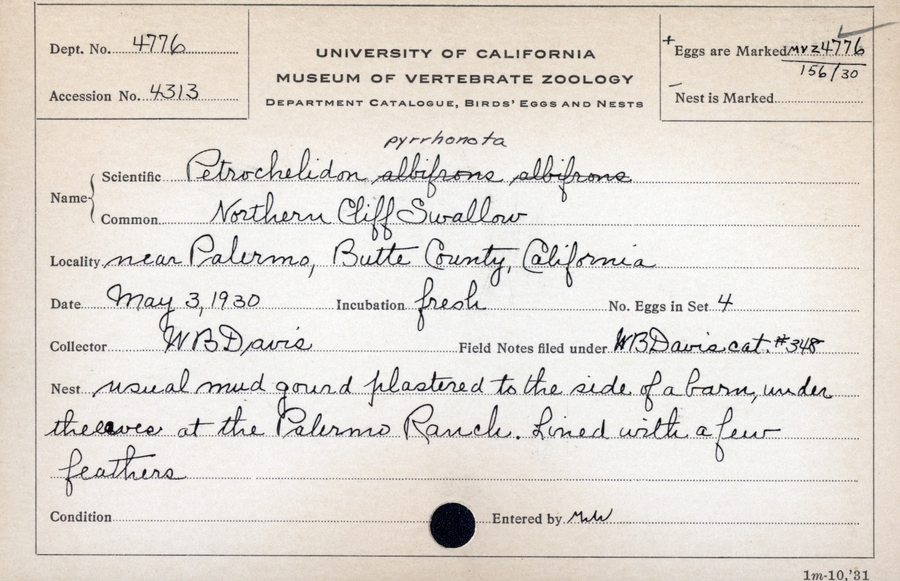 Dept. No. 4776
Accession No. 4313
UNIVERSITY OF CALIFORNIA
MUSEUM OF VERTEBRATE ZOOLOGY
DEPARTMENT CATALOGUE, BIRDS' EGGS AND NESTS
+ Eggs are Marked MVZ4776
156/30
– Nest is Marked
pyrrhonota
Name Scientific Petrochelidon albifrons albifrons
Common Northern Cliff Swallow
Locality near Palermo, Butte County, California
Date May 3, 1930 Incubation fresh No. Eggs in Set 4
Collector WBDavis Field Notes filed under WBDavis cat. #348
Nest usual mud gourd plastered to the side of a barn, under
the eaves at the Palermo Ranch. Lined with a few
feathers
Condition Entered by
1m-10,'31